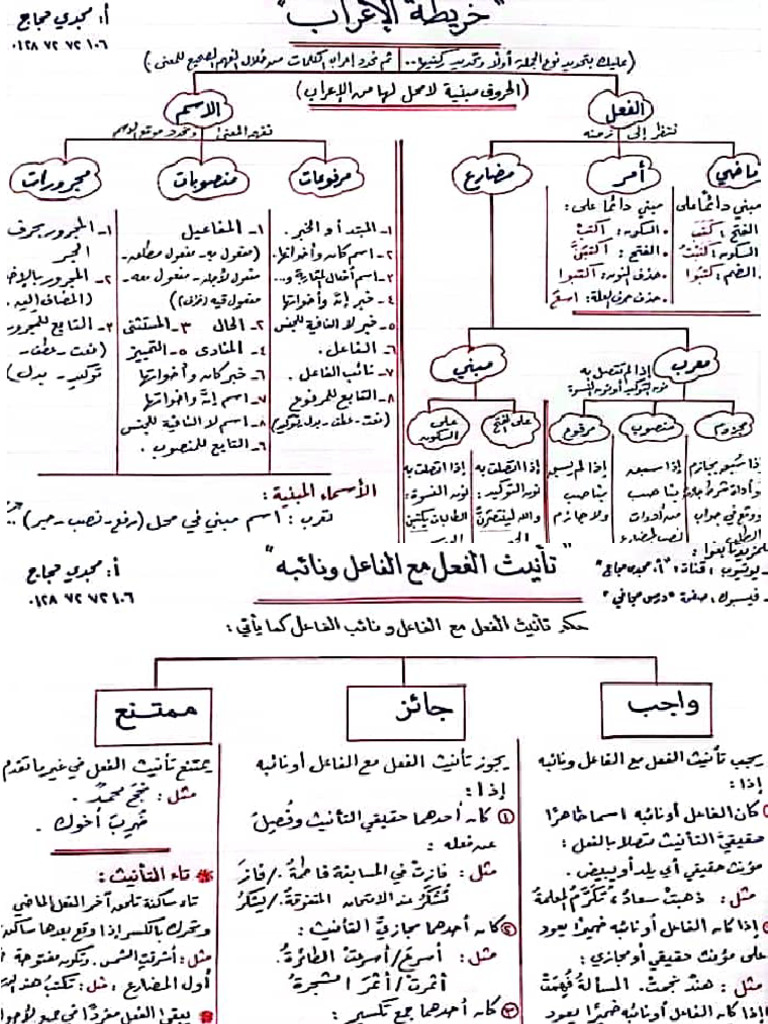 "خريطة الإعراب"
أ: مجدي حجاج
٠١٢٨ ٧٢ ٧٢ ١٠٦
(عليك بتحديد نوع الجملة أولًا وتحديد ركنيها.. ثم تحدد إعراب الكلمات من خلال الفهم الصحيح للمعنى:)
(الحروف مبنية لا محل لها من الإعراب)
الفعل
ننظر إلى زمنه
ماضي
مبني دائمًا على
الفتح: كَتَبَ
السكون: كَتَبْتُ
الضم: كتبُوا
أمر
مبني دائمًا على:
• السكون: اكتبْ
• الفتح: اكتبَنَّ
• حذف النون: اكتبوا
• حذف حرف العلة: اسعَ
مضارع
معرب
إذا لم تتصل به
نون التوكيد أو نون النسوة
مجزوم
إذا سُبق بجازم
وأداة شرط جازمة
ووقع في جواب
الطلب
منصوب
إذا سبقه
ناصب
من أدوات
نصب المضارع
مرفوع
إذا لم يسبقه
ناصب
ولا جازم
مبني
على الفتح
إذا اتصلت به
نون التوكيد:
والله لينتصرَنَّ
على السكون
إذا اتصلت به
نون النسوة:
الطالبات يكتبْنَ
الاسم
نفهم المعنى ونحدد موقع الاسم
مرفوعات
١- المبتدأ والخبر.
٢- اسم كان وأخواتها.
٣- اسم أفعال المقاربة و...
٤- خبر إنَّ وأخواتها
٥- خبر لا النافية للجنس
٦- الفاعل.
٧- نائب الفاعل.
٨- التابع للمرفوع
(نعت - عطف - بدل - توكيد)
منصوبات
١- المفاعيل
(مفعول به - مفعول مطلق -
مفعول لأجله - مفعول معه -
مفعول فيه (ظرف))
٢- الحال ٣- المستثنى
٤- المنادى ٥- التمييز
٦- خبر كان وأخواتها
٧- اسم إنَّ وأخواتها
٨- اسم لا النافية للجنس
٦- التابع للمنصوب.
مجرورات
١- المجرور بحرف
الجر
٢- المجرور بالإضا
(المضاف إليه)
٣- التابع للمجرور
(نعت - عطف -
توكيد - بدل)
الأسماء المبنية:
تعرب: اسم مبني في محل (رفع - نصب - جر)
"تأنيث الفعل مع الفاعل ونائبه"
أ: مجدي حجاج
٠١٢٨ ٧٢ ٧٢ ١٠٦
للمزيد تابعونا:
- يوتيوب: قناة: "أ. مجدي حجاج"
- فيسبوك: صفحة "درس مجاني"
حكم تأنيث الفعل مع الفاعل ونائب الفاعل كما يأتي:
واجب
يجب تأنيث الفعل مع الفاعل ونائبه
إذا:
كان الفاعل أو نائبه اسمًا ظاهرًا
حقيقيَّ التأنيث متصلًا بالفعل:
مؤنث حقيقي أي يلد أو يبيض.
مثل: ذهبتْ سعادُ، تُكرَّمُ المعلمةُ
إذا كان الفاعل أو نائبه ضميرًا يعود
على مؤنث حقيقي أو مجازي:
مثل: هندٌ نجحتْ. المسألةُ فُهِمَتْ
إذا كان الفاعل أو نائبه ضميرًا يعود
جائز
يجوز تأنيث الفعل مع الفاعل أو نائبه
إذا:
① كان أحدهما حقيقي التأنيث وفُصِلَ
عن فعله:
مثل: فازتْ في المسابقة فاطمةُ. / فازَ
تُشكَرُ عند الامتحان المتفوقةُ. / يُشكَرُ
② كان أحدهما مجازيَّ التأنيث:
مثل: أسرعَ / أسرعتْ الطائرةُ.
أثمرتْ / أثمرَ الشجرةُ
③ كان أحدهما جمع تكسير:
ممتنع
يمتنع تأنيث الفعل في غير ما تقدم
مثل: نجحَ محمدٌ.
ضُرِبَ أخوك.
* تاء التأنيث:
تاء ساكنة تلحق آخر الفعل الماضي
وتتحرك بالكسر إذا وقع بعدها ساكن
مثل: أشرقتِ الشمس. وتكون مفتوحة
أول المضارع: مثل: تكتبُ هند
* يبقى الفعل مفردًا في جميع الأحوال